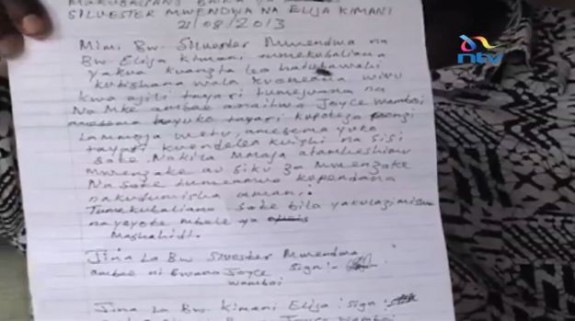 MAKUBALIANO BAINA YA
SILVESTER MWENDWA NA ELIJA KIMANI
21/08/2013
ntv
Mimi Bw. Silvester Mwendwa na
Bw Elija Kimani tumekubaliana
yakua kuanzia leo hatutawahi
kutishana wala kuoneana wivu
kwa ajili tayari tumejuana na
Na Mke ambae anaitwa Joyce Wamboi
amesema hayuko tayari kupoteza
mmoja wetu, amesema yuko
tayari kuendelea kuishi na sisi
sote. Na kila Mmoja atamheshimu
mwenzake au siku za Mwenzake
Na sote tumeamua kupendana
nakudumisha amani.
Tumekubaliana sote bila yakulazimishwa
na yeyote mbele ya
Mashahidi.
Jina La Bw Silvester Mwendwa
ambae ni Bwana Joyce sign:-
Wamboi
Jina La Bw. Kimani Elija: sign:
Joyce Wamboi